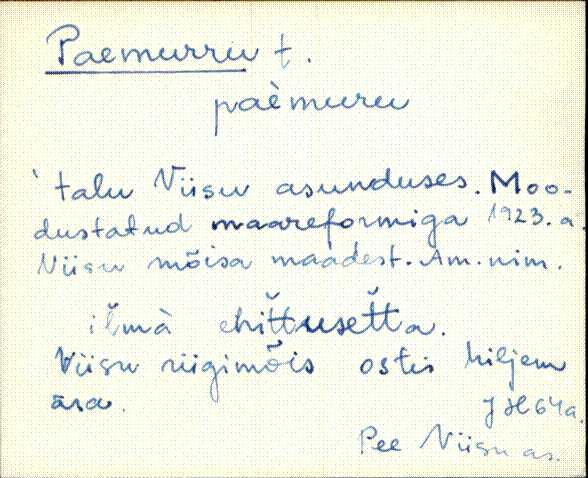 Paemurru t.
paèmuru
'talu Viisu asunduses. Moo-
dustatud maareformiga 1923. a.
Viisu mõisa maadest. Am. nim.
ilmà ehittusetta.
Viisu riigimõis ostis hiljem
ära.
JH 64a.
Pee Viisu as.